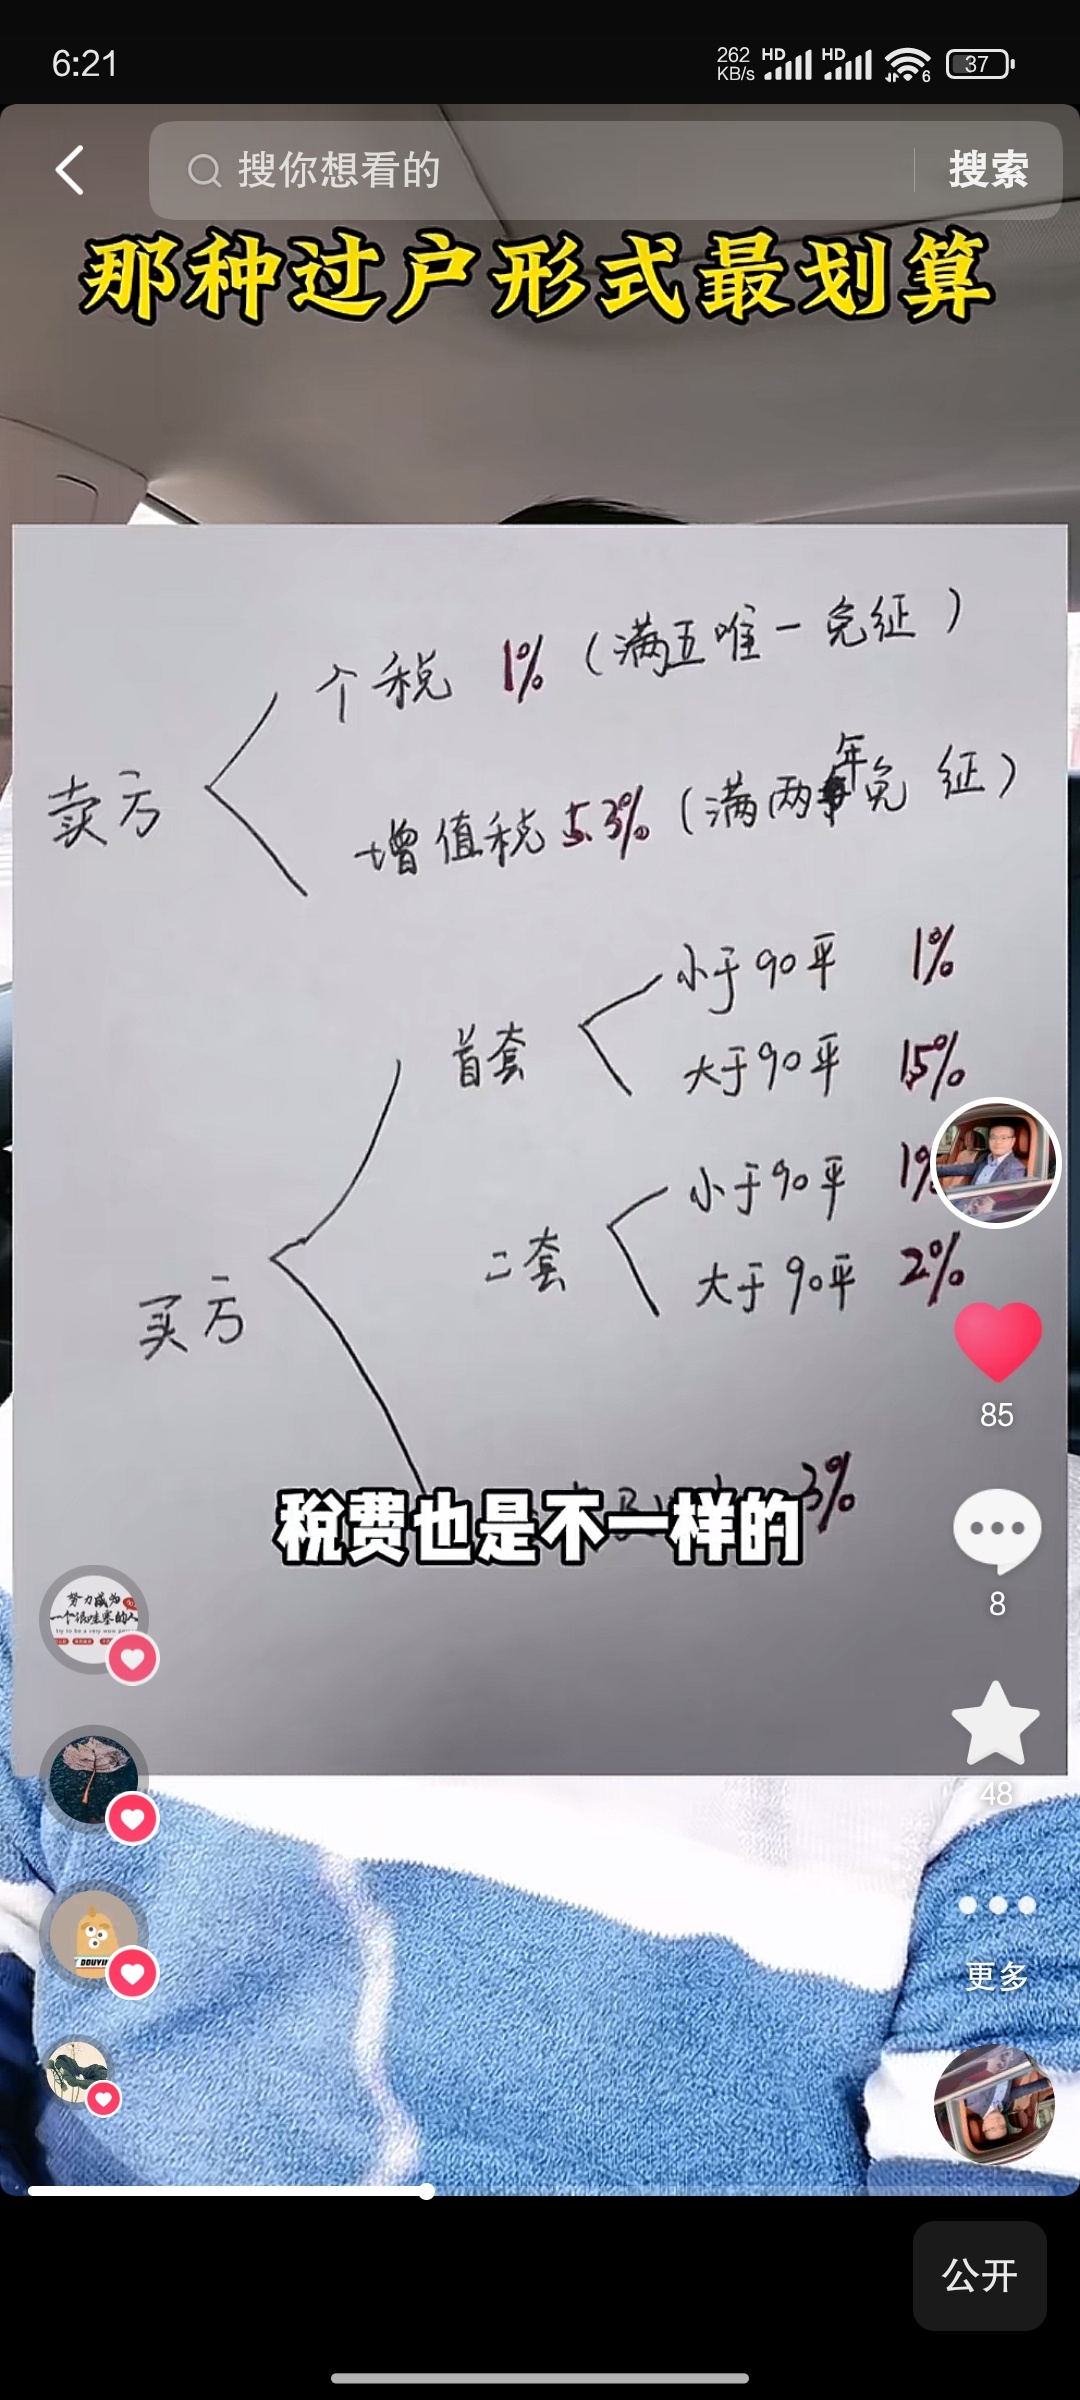 6:21
262
KB/s
HD
HD
6
37
搜你想看的
搜索
那种过户形式最划算
个税 1% (满五唯一免征)
卖方
增值税 5.3% (满两年免征)
小于90平 1%
首套
大于90平 1.5%
小于90平 1%
二套
大于90平 2%
买方
3%
税费也是不一样的
85
努力成为
一个很哇塞的人
try to be a very wow
8
48
DOUYIN
更多
公开